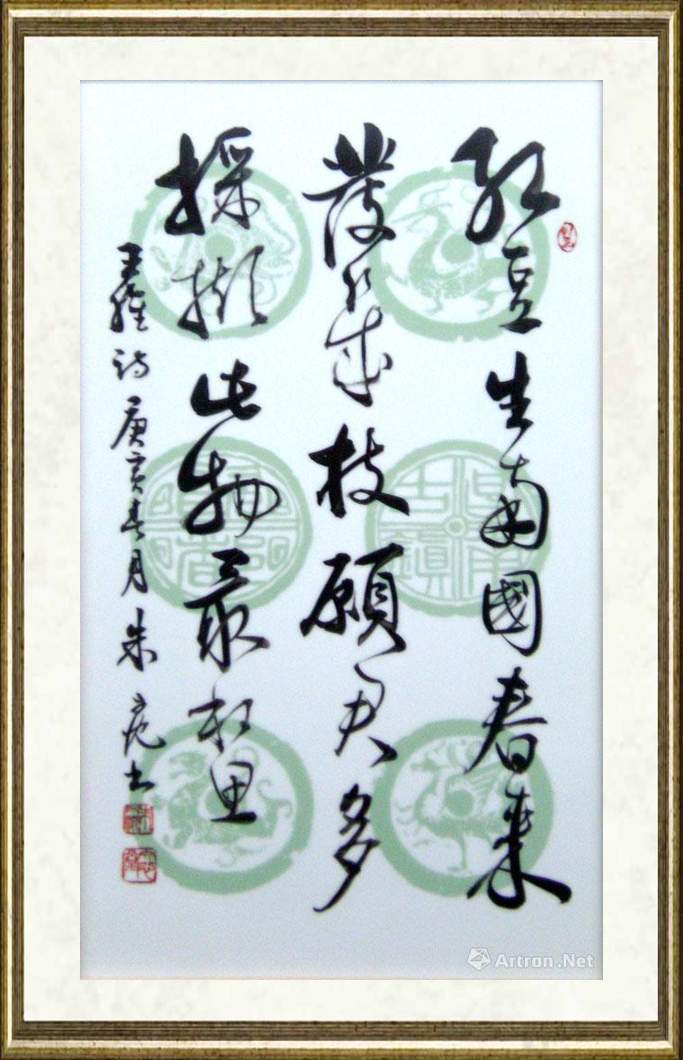 紅豆生南國春来
發幾枝願君多
採擷此物最相思
王維詩庚寅春月朱书
Artron.Net